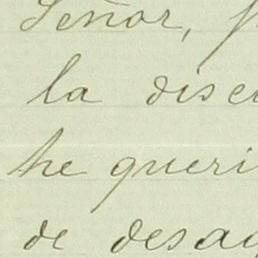 Señor, p
la discu
he queri
de desag